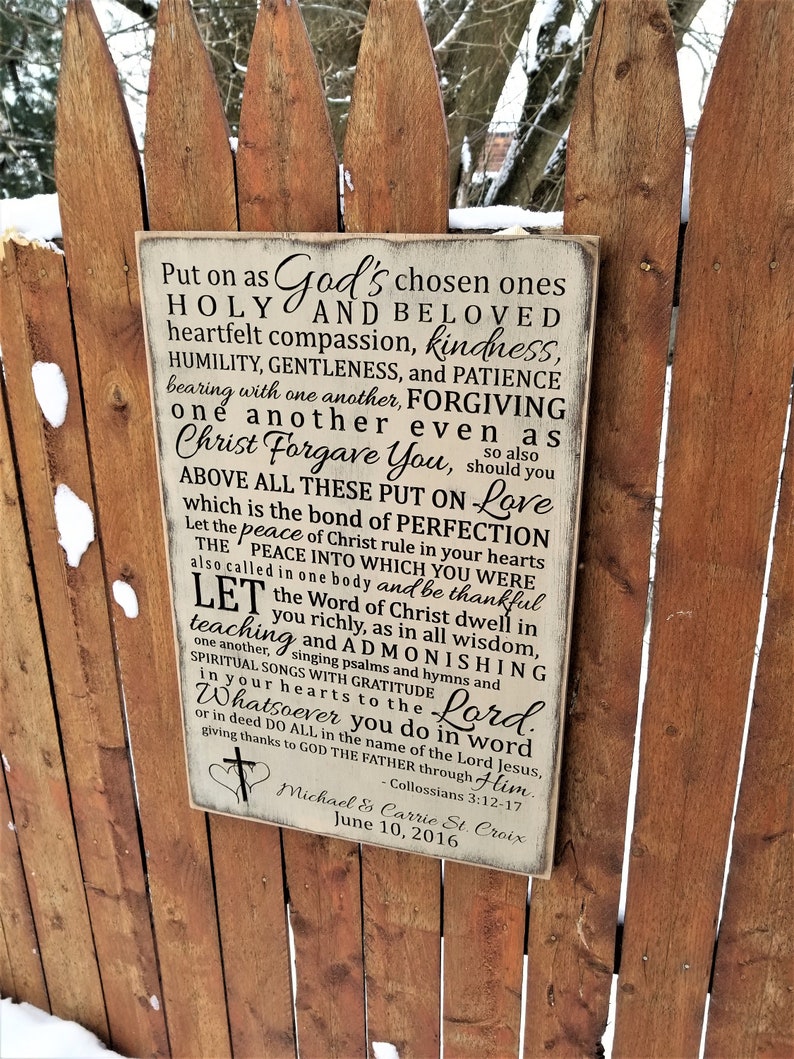 Put on as God's chosen ones
HOLY AND BELOVED
heartfelt compassion, kindness,
HUMILITY, GENTLENESS, and PATIENCE
bearing with one another, FORGIVING
one another even as
Christ Forgave You, so also should you
ABOVE ALL THESE PUT ON Love
which is the bond of PERFECTION
Let the peace of Christ rule in your hearts
THE PEACE INTO WHICH YOU WERE
also called in one body and be thankful
LET the Word of Christ dwell in
you richly, as in all wisdom,
teaching and ADMONISHING
one another, singing psalms and hymns and
SPIRITUAL SONGS WITH GRATITUDE
in your hearts to the Lord.
Whatsoever you do in word
or in deed DO ALL in the name of the Lord Jesus,
giving thanks to GOD THE FATHER through Him.
- Collossians 3:12-17
Michael & Carrie St. Croix
June 10, 2016